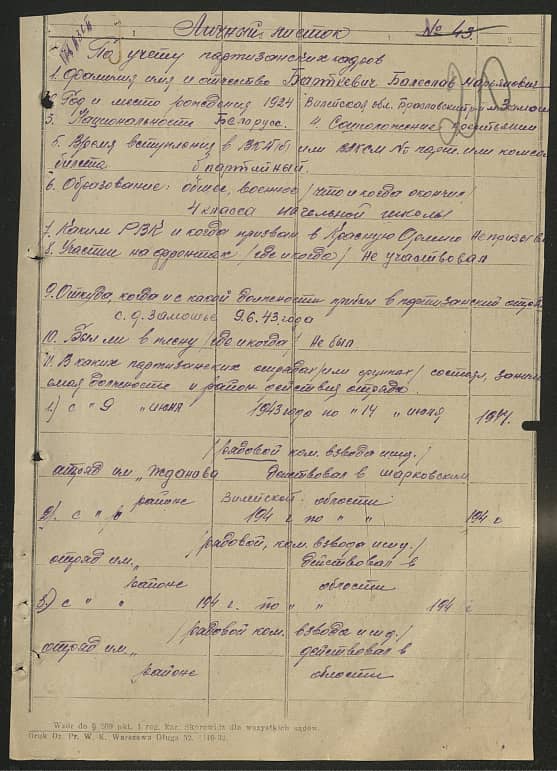 Личный листок № 45.
По учету партизанских кадров
1. Фамилия имя и отчество Барткевич Болеслав Марьянович
2. Год и место рождения 1924 Вилейская обл. р-н д. Замошье
3. Национальность Белорусс. 4. Соцположение крестьянин
5. Время вступления в ВКП(б) или ВЛКСМ № парт. или комсо
билета б/партийный.
6. Образование: общее, военное /что и когда окончил/
4 класса начальной школы
7. Каким РВК и когда призван в Красную Армию Не призывался
8. Участие на фронтах /где и когда/ Не участвовал
9. Откуда, когда и с какой должности прибыл в партизанский отряд
с. д. Замошье 9.6.43. года
10. Был ли в плену /где и когда/ Не был
11. В каких партизанских отрядах /или группах/ состоял, занима
емая должность и район действия отряда.
1.) с "9 " июня 1943 года по "14 " июня 1944.
/рядовой ком. взвода и т.д./
отряд им. "Жданова действовал в Шарковским
районе Вилейской области
2). с " " 194 г по " " 194 г
/рядовой, ком. взвода и т.д./
отряд им. " действовал в
районе области
3) с " " 194 г. по " " 194 г
/рядовой ком. взвода и т.д./
отряд им " действовал в
районе области
Wzór do § 509 pkt. 1 reg. Kar. Skorowidz dla wszystkich sądów.
Druk Oz. Pr. W. K. Warszawa Długa 52.